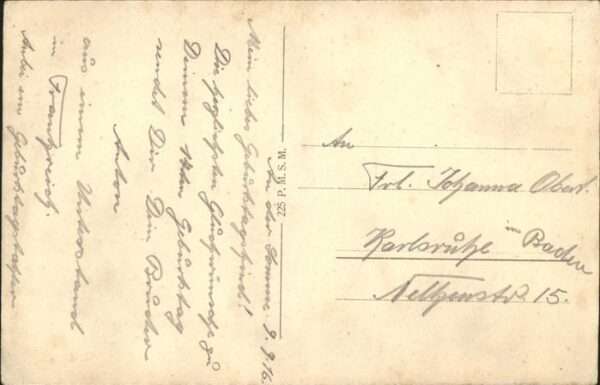 An der Somme 9.9.16.
Mein liebes Geburtstagskind!
Die herzlichsten Glückwünsche zu
Deinem 14ten Geburtstag
sendet Dir Dein Bruder
Anton
aus einem Unterstand
in Frankreich.
Anbei ein
225 P. M. S. M.
An
Frl. Johanna Obert.
Karlsruhe in Baden
Nelkenstr. 15.